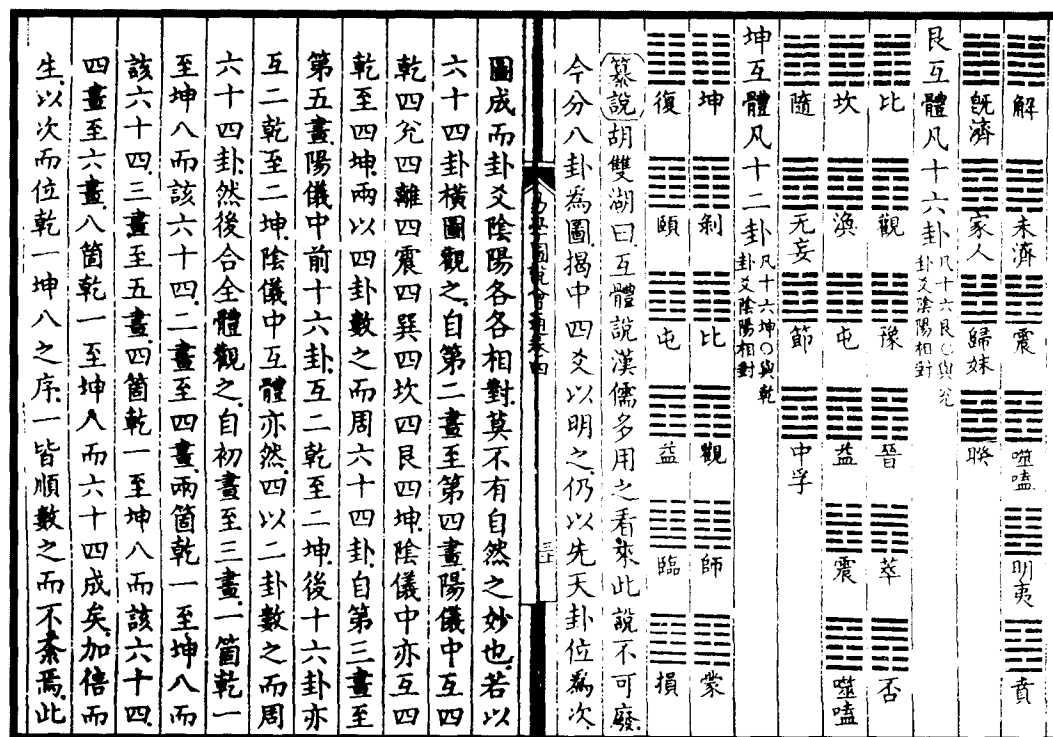 解 未濟 震 噬嗑 明夷 賁
旣濟 家人 歸妹 睽
艮互體凡十六卦 凡十六艮○與兌
卦爻陰陽相對
比 觀 豫 晉 萃 否
坎 渙 屯 益 震 噬嗑
隨 无妄 節 中孚
坤互體凡十二卦 凡十六坤○與乾
卦爻陰陽相對
坤 剝 比 觀 師 蒙
復 頤 屯 益 臨 損
纂說 胡雙湖曰互體說漢儒多用之看來此說不可廢
今分八卦為圖揭中四爻以明之仍以先天卦位為次
易學圖說會通卷四
圖成而卦爻陰陽各各相對莫不有自然之妙也若以
六十四卦橫圖觀之自第二畫至第四畫陽儀中互四
乾四兌四離四震四巽四坎四艮四坤陰儀中亦互四
乾至四坤兩以四卦數之而周六十四卦自第三畫至
第五畫陽儀中前十六卦互二乾至二坤後十六卦亦
互二乾至二坤陰儀中互體亦然四以二卦數之而周
六十四卦然後合全體觀之自初畫至三畫一箇乾一
至坤八而該六十四二畫至四畫兩箇乾一至坤八而
該六十四三畫至五畫四箇乾一至坤八而該六十四
四畫至六畫八箇乾一至坤八而六十四成矣加倍而
生以次而位乾一坤八之序一皆順數之而不紊焉此